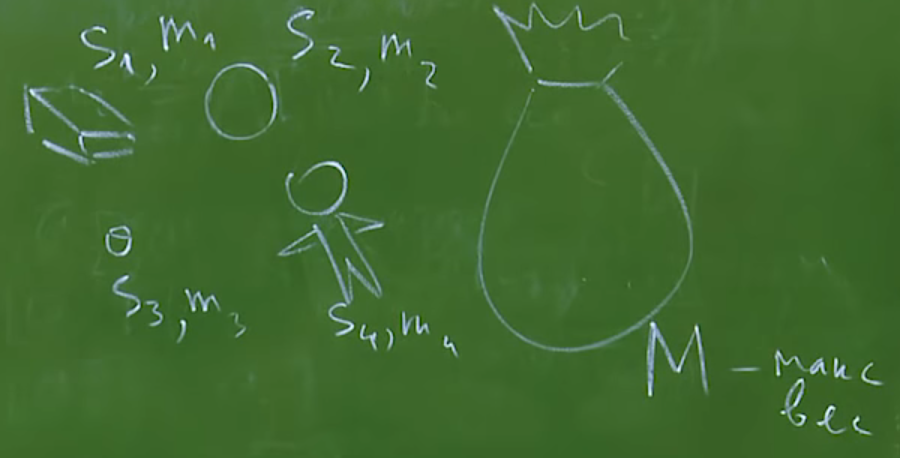 S₁, m₁
S₂, m₂
S₃, m₃
S₄, m₄
M – макс
вес